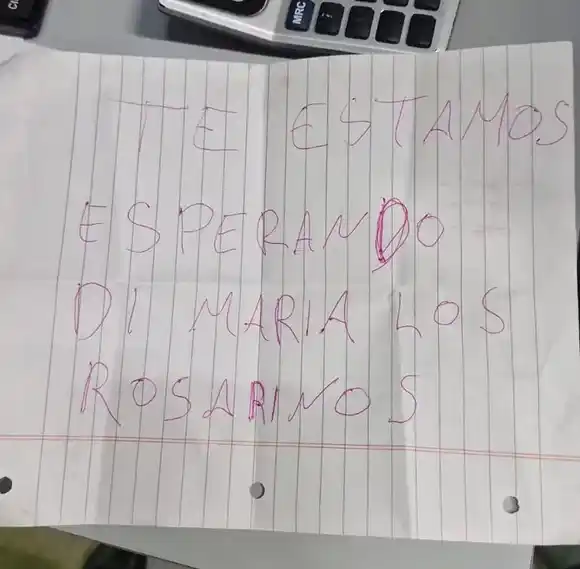 MRC
TE ESTAMOS
ESPERANDO
DI MARIA LOS
ROSARINOS